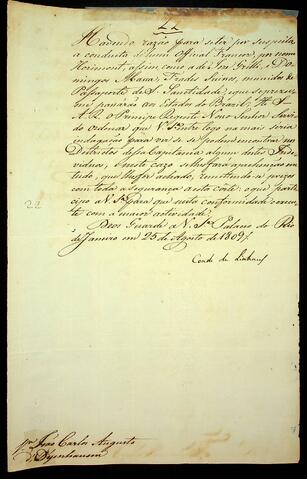 La
Havendo razão para se ter por suspeita
a conducta de um Official Francez, por nome
Hermont, assim como a de Joze Grilli, e Do-
mingos Maxa, Frades Suisos, munidos de
Passaporte de S. Santidade; que se prezu-
me passarão aos Estados do Brazil; He S.
A. R. o Principe Regente Nosso Senhor Servi-
do ordenar que V. Sª entre logo na mais seria
indagação para ver se se podem encontrar nos
Districtos dessa Capitania algum destes Indi-
viduos, e neste cazo se lhes fará aprehenção em
tudo, que lhes for achado, remettendo-os prezos
com toda a segurança a esta côrte: o que parti-
cipo a V. Sª para que nesta conformidade execu-
te com a maior actividade.
Deos Guarde a V. Sª Palacio do Rio
de Janeiro em 25 de Agosto de 1809.
Conde de Linhares
22
Joao Carlos Augusto
d'Oyenhausen